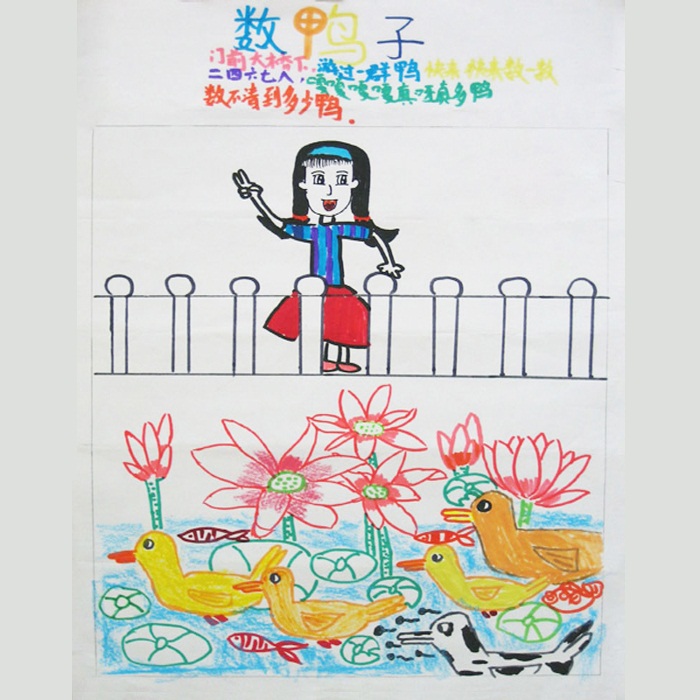 数鸭子
门前大桥下,游过一群鸭 快来 快来数一数
二四六七八,嘎嘎嘎嘎真呀真多鸭
数不清到多少鸭.